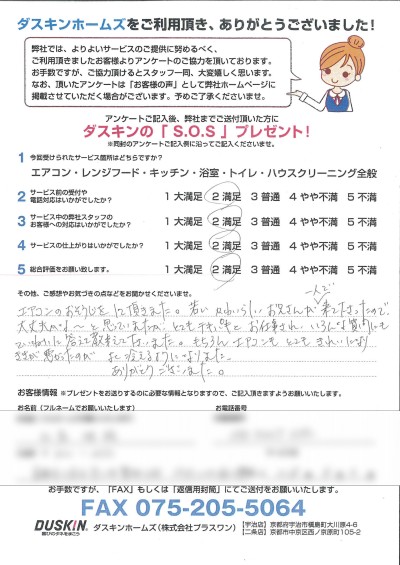 ダスキンホームズをご利用頂き、ありがとうございました!
弊社では、よりよいサービスのご提供に努めるべく、
ご利用頂きましたお客様よりアンケートのご協力を頂いております。
お手数ですが、ご協力頂けるとスタッフ一同、大変嬉しく思います。
なお、頂いたアンケートは「お客様の声」として弊社ホームページに
掲載させていただく場合がございます。予めご了承くださいませ。
アンケートご記入後、弊社までご送付頂いた方に
ダスキンの「S.O.S」プレゼント!
※同封のアンケートご記入例に沿ってご記入くださいませ。
1 今回受けられたサービス箇所はどちらですか?
エアコン・レンジフード・キッチン・浴室・トイレ・ハウスクリーニング全般
2 サービス前の受付や電話対応はいかがでしたか? 1 大満足 2 満足 3 普通 4 やや不満 5 不満
3 サービス中の弊社スタッフのお客様への対応はいかがでしたか? 1 大満足 2 満足 3 普通 4 やや不満 5 不満
4 サービスの仕上がりはいかがでしたか? 1 大満足 2 満足 3 普通 4 やや不満 5 不満
5 総合評価をお願い致します。 1 大満足 2 満足 3 普通 4 やや不満 5 不満
その他、ご感想やお気づきの点などをお聞かせくださいませ。
エアコンのおそうじをして頂きました。若い お兄さんが一人で来て下さったので、
大丈夫かな〜と思っていましたが、とてもテキパキとお仕事され、いろんな質問にも
ていねいに答えて下さいました。もちろんエアコンも とても きれいになり
よく冷えるようになりました。
ありがとうございました。
お客様情報 ※プレゼントをお送りするのに必要な情報となりますので、ご記入頂きますようお願いいたします。
お名前(フルネームでお願いいたします) お電話番号
お手数ですが、「FAX」もしくは「返信用封筒」にてご送付をお願いいたします。
FAX 075-205-5064
DUSKIN 喜びのタネをまこう ダスキンホームズ(株式会社プラスワン)
【宇治店】京都府宇治市槇島町大川原4-6
【二条店】京都市中京区西ノ京原町105-2